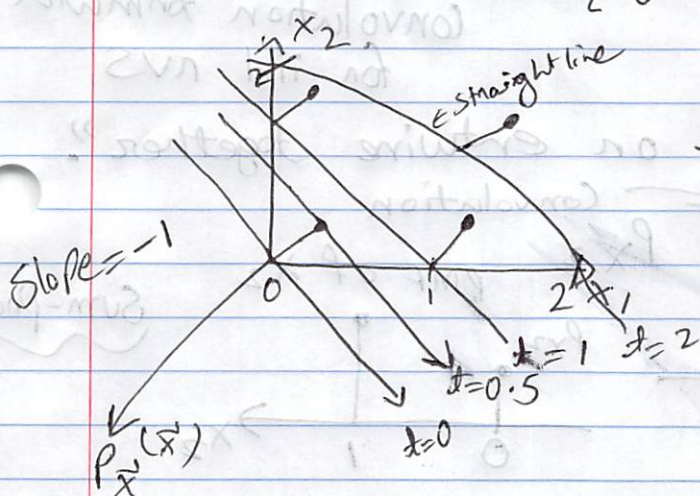 x₂
2
← straight line
Slope = -1
0
1
2
x₁
t=2
t=1
t=0.5
t=0
P_x⃗(x⃗)